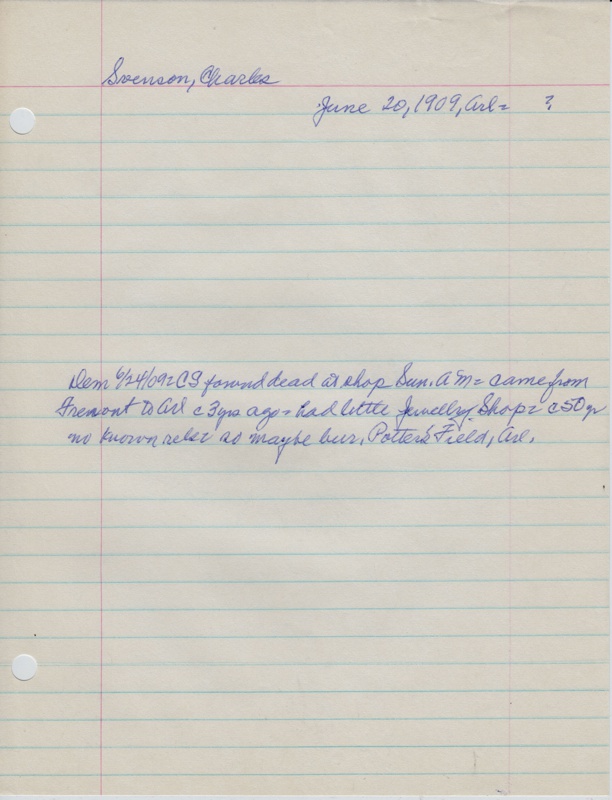 Svenson, Charles
June 20, 1909, Arl= ?
Dem 6/24/09= CS found dead at shop Sun. AM= came from
Fremont to Arl c 3 yrs ago= had little Jewellry Shop= c 50 yr
no known rels= so maybe bur. Potters' Field, Arl.